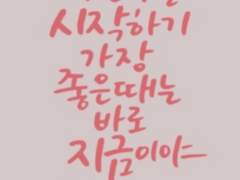 시작하기
가장
좋은때는
바로
지금이야